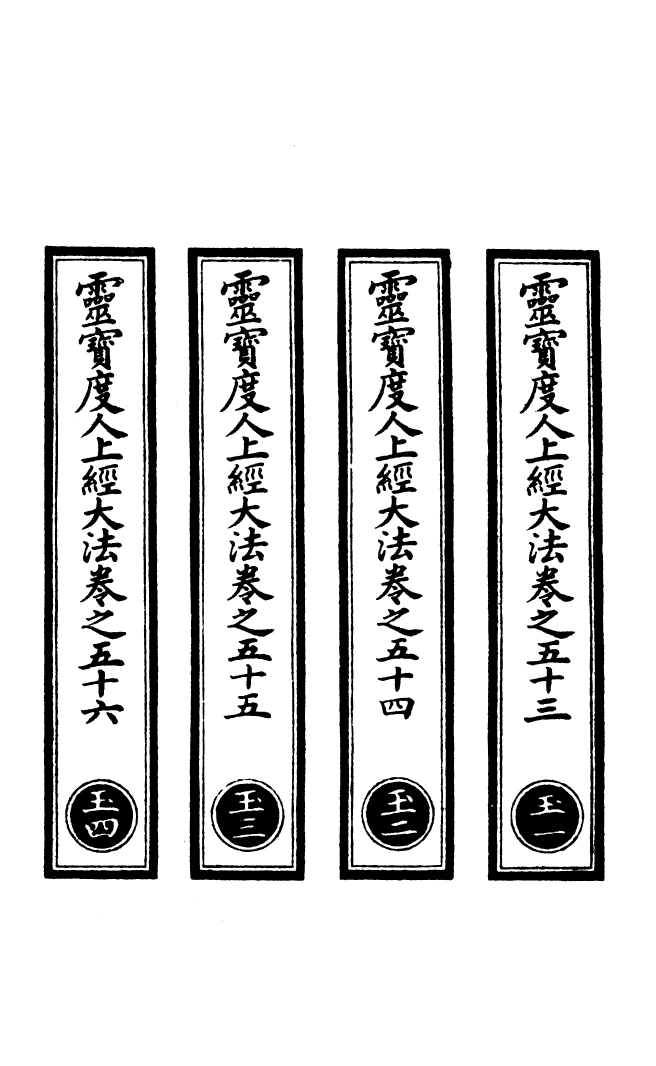 靈寶度人上經大法卷之五十三
玉一
靈寶度人上經大法卷之五十四
玉二
靈寶度人上經大法卷之五十五
玉三
靈寶度人上經大法卷之五十六
玉四